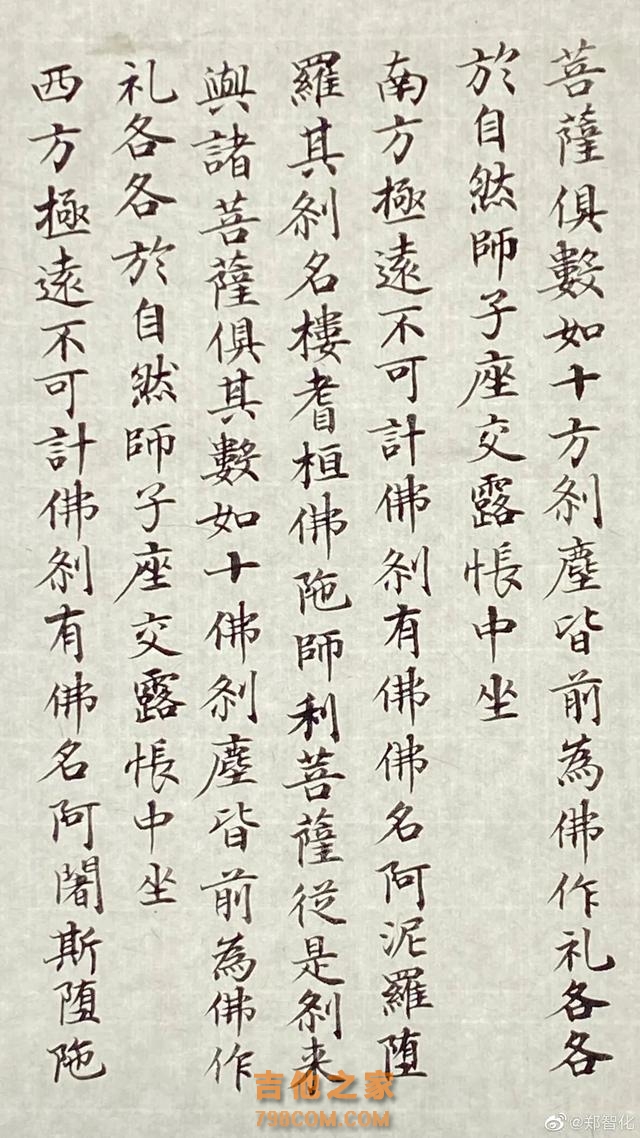 菩薩俱數如十方刹塵皆前為佛作礼各各
於自然師子座交露帳中坐
南方極遠不可計佛刹有佛佛名阿泥羅堕
羅其刹名樓耆桓佛陁師利菩薩從是刹来
與諸菩薩俱其數如十佛刹塵皆前為佛作
礼各各於自然師子座交露帳中坐
西方極遠不可計佛刹有佛名阿闍斯堕陁
吉他之家
798COM.COM
@郑智化